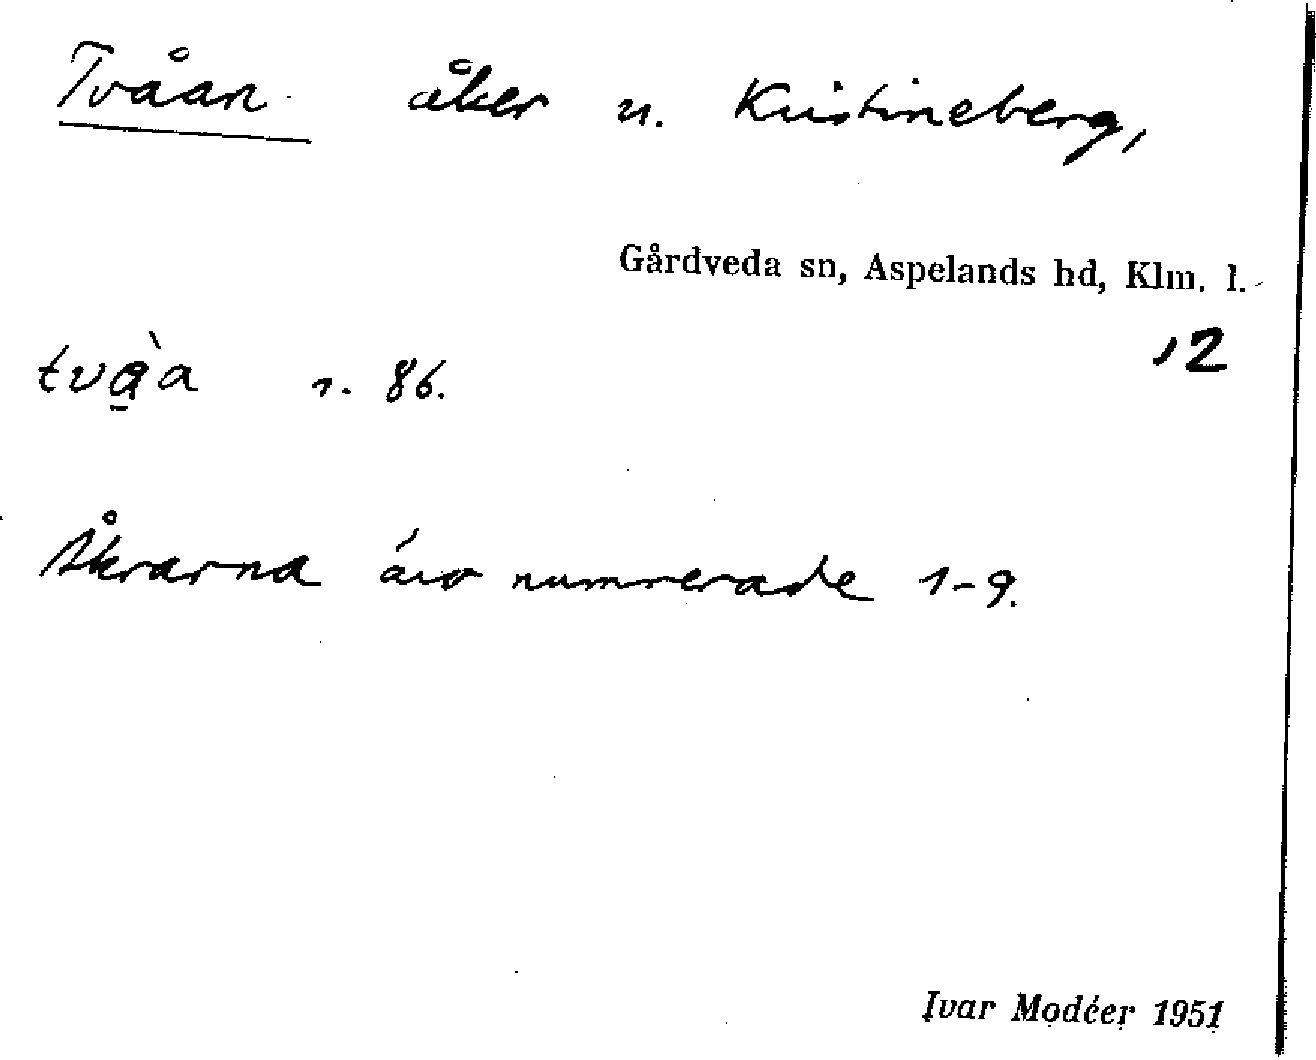 Tvåan åker u. Kristineberg,
Gårdveda sn, Aspelands hd, Klm. l.
12
två̱̀a r. 86.
Åkrarna äro numrerade 1-9.
Ivar Modéer 1951